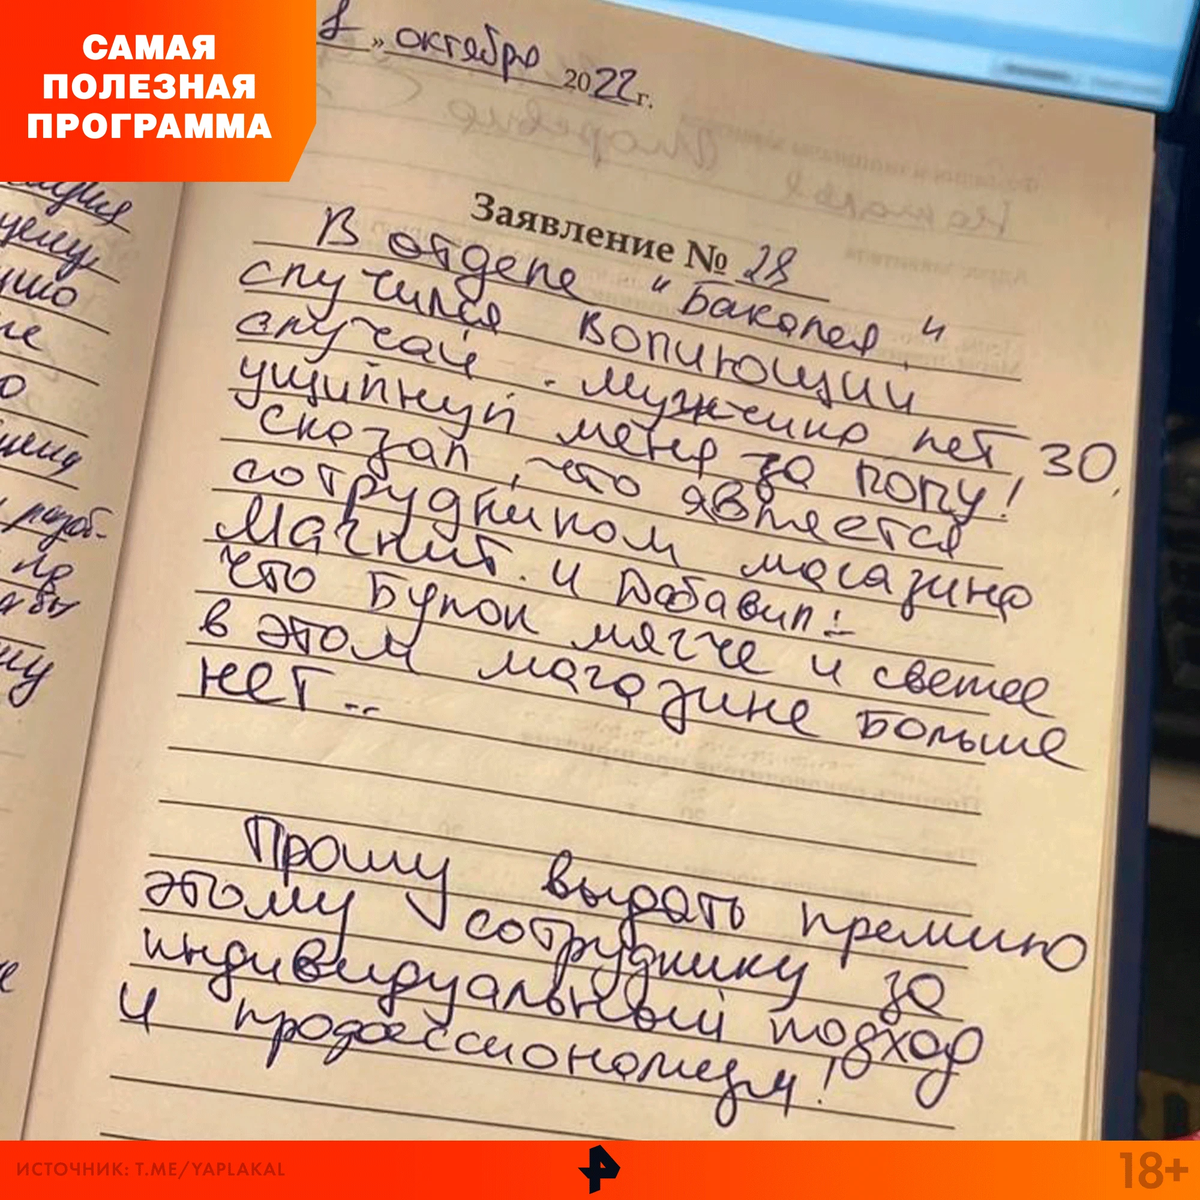 САМАЯ
ПОЛЕЗНАЯ
ПРОГРАММА
октября 2022 г.
Заявление № 28
В отделе "Бакалея"
случился вопиющий
случай. Мужчина лет 30,
ущипнул меня за попу!
Сказал, что является
сотрудником магазина
Магнит. И Добавил:-
что Булок мягче и свежее
в этом магазине больше
нет..
Прошу выдать премию
этому сотруднику за
индивидуальный подход
и профессионализм!
ИСТОЧНИК: T.ME/YAPLAKAL
18+